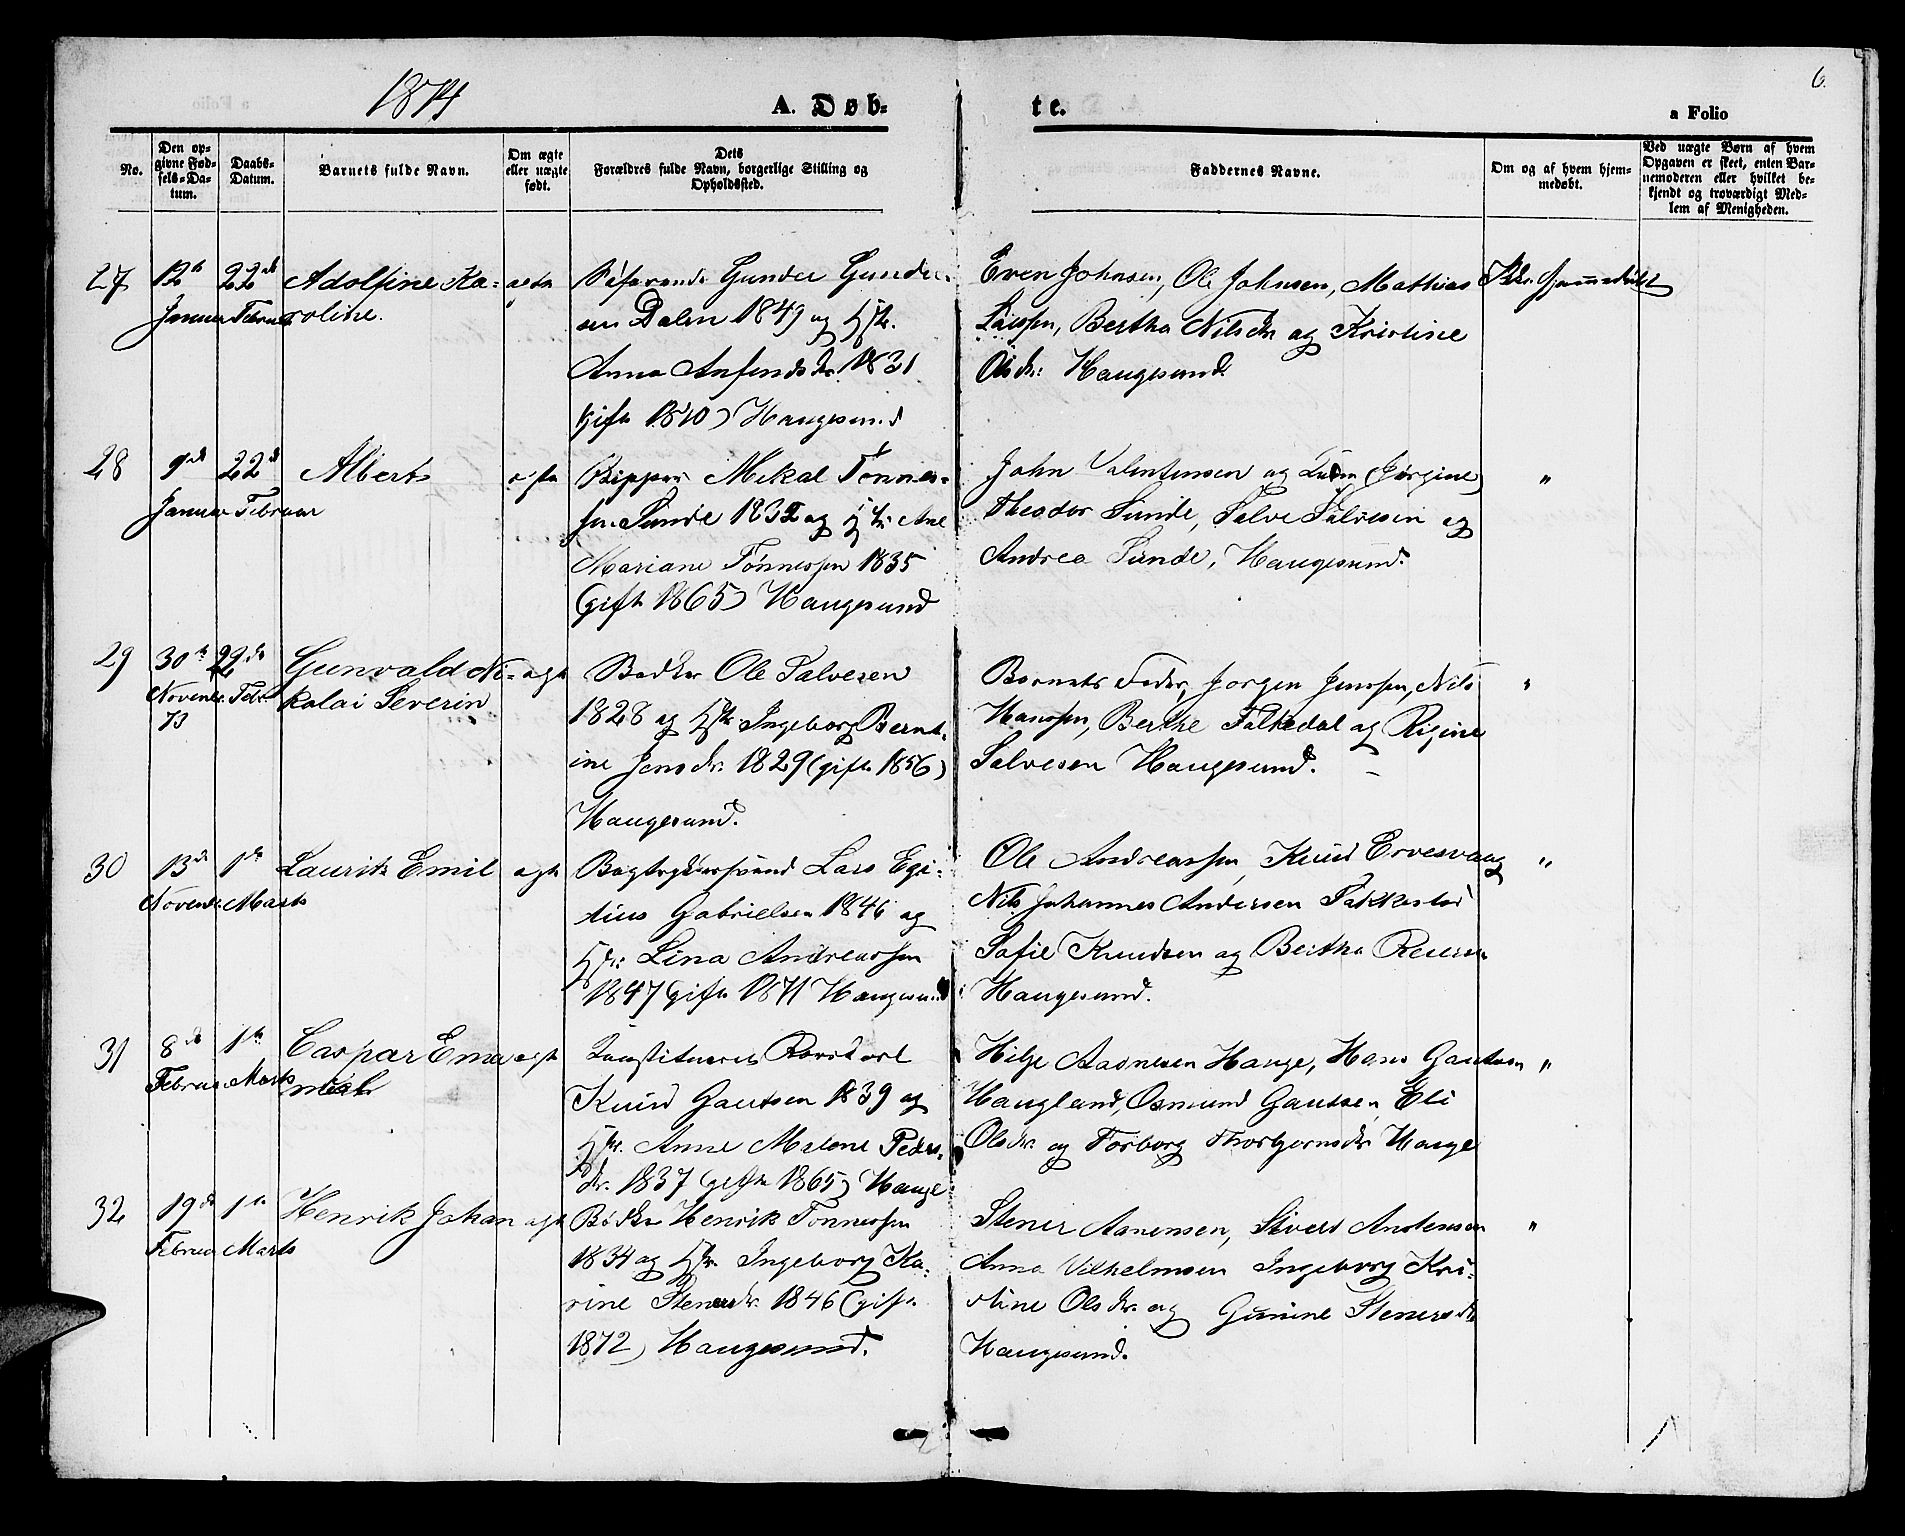 6.
1874
A. Døb-
te.
a Folio
No.
Den op-
givne Fød-
sels-Da-
tum.
Daabs-
Datum.
Barnets fulde Navn.
Om ægte
eller uægte
født.
Dets
Forældres fulde Navn, borgerlige Stilling og
Opholdssted.
Faddernes Navne.
Om og af hvem hjem-
medøbt.
Ved uægte Børn af hvem
Opgaven er skeet, enten Bar-
nemoderen eller hvilket be-
kjendt og troværdigt Med-
lem af Menigheden.
27
12te
Januar
22de
Februar
Adolfine Ka-
roline.
ægte
Søfarende Gunder Gunder-
sen Dalen 1849 og Hstr.
Anna Anfends dr. 1831
(gift 1870) Haugesund
Even Johnsen, Ole Johnsen, Mathias
Larssen, Bertha Nilsdr og Kristine
Olsdr: Haugesund
Ikke hjemmedøbt
28
9de
Januar
22de
Februar
Albert
ægte
Skipper Mikal Tønnes-
sen Sunde 1832 og Hstr. Ane
Mariane Tønnessen 1835
(gift 1865) Haugesund
John Valentinsen og (Jørgine)
Theodor Sunde, Salve Salvesen og
Andrea Sunde, Haugesund.
"
29
30te
Novembr
73
22de
Febr
Gunvald Ni-
kolai Severin
ægte
Bødker Ole Salvesen
1828 og Hstr. Ingeborg Bernt-
ine Jensdr. 1829 (gift 1856)
Haugesund.
Barnets Fader, Jørgen Jenssen, Nils
Hanssen, Berthe Falkedal og Rigine
Salvesen Haugesund.
"
30
13de
Novembr.
1te
Marts
Lauritz Emil
ægte
Bogtrykkersvend Lars Egi-
tius Gabrielsen 1846 og
Hstr: Lina Andreassen
1847 (gift 1871 Haugesund
Ole Andreassen, Knud Ervesvaag
Nils Johannes Andersen Sakkestad
Sofie Knudsen og Bertha Reiersen
Haugesund.
"
31
8de
Februar
1te
Marts
Caspar Ema
nuel
ægte
Konstitueret
Knud Gautsen 1839 og
Hstr. Anne Malene Peders-
dr. 1837 (gift 1865) Hauge
Hilje Aasnesen Hauge, Hans Gautsen
Haugland, Osmund Gautsen, Eli
Olsdr. og Torborg Thorbjørnsdr. Hauge
"
32
19de
Februar
1te
Marts
Henrik Johan
ægte
Bødker Henrik Tønnessen
1834 og Hstr. Ingeborg Ka-
rine Stenersdr. 1846 (gift
1872) Haugesund.
Stener Asmensen, Sivert Andersen
Anna Vilhelmsen Ingeborg Kri-
stine Olsdr. og Gunine Stenersdr
Haugesund.
"